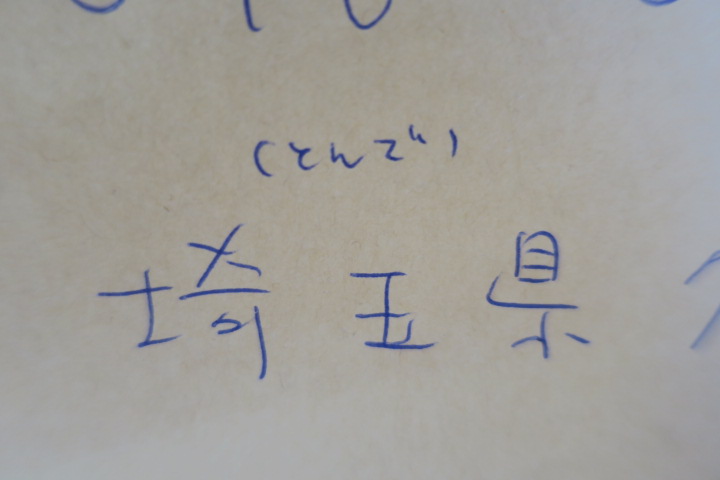 (とんで)
埼玉県